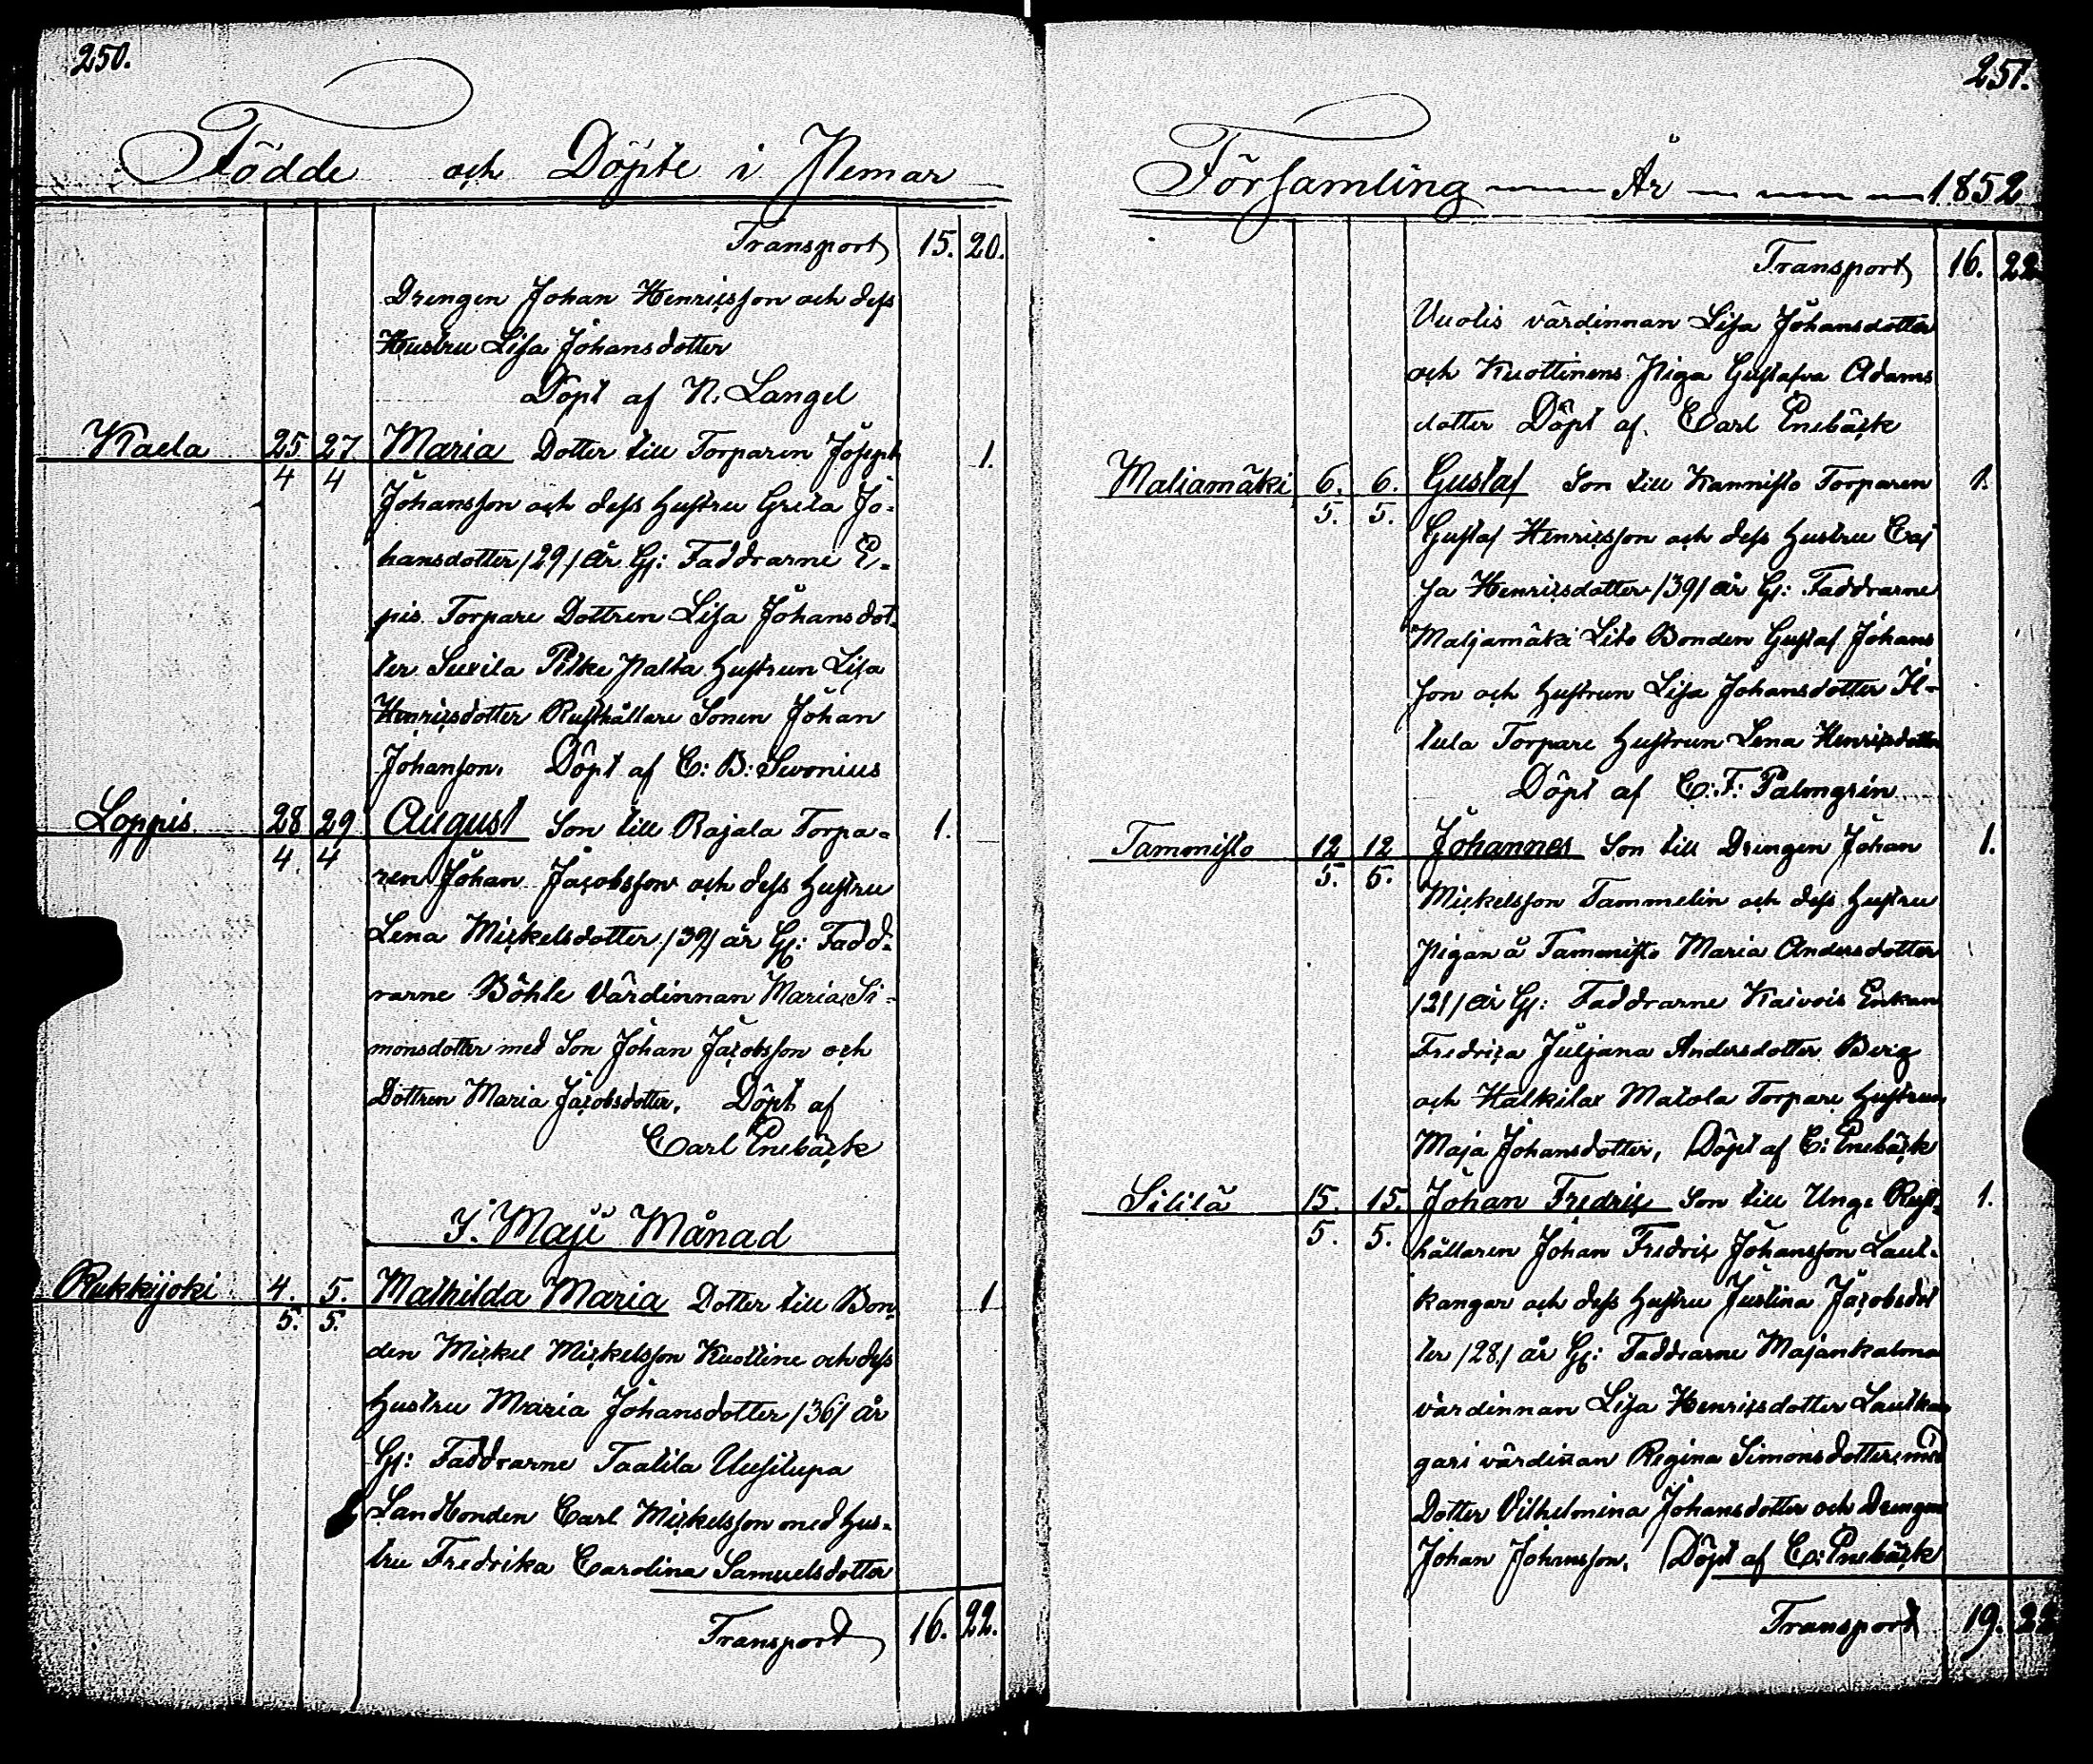 250.
Födde och Döpte i Pemar
Transport 15. 20.
Drengen Johan Henricsson och dess
Hustru Lisa Johansdotter
Döpt af N. Langel
Kaela 25/4 27/4 Maria Dotter till Torparen Joseph 1.
Johansson och dess Hustru Greta Jo-
hansdotter /29/ år Gl: Faddrarne E-
pis Torpare Dottren Lisa Johansdot-
ter Suxila Pilke Palta Hustrun Lisa
Henricsdotter Rusthållare Sonen Johan
Johanson. Döpt af C: B: Swonius
Loppis 28/4 29/4 August Son till Rajala Torpa- 1.
ren Johan Jacobsson och dess Hustru
Lena Mickelsdotter /39/ år Gl: Fadd-
rarne Böhle Värdinnan Maria Si-
monsdotter med Son Johan Jacobsson och
Dottren Maria Jacobsdotter. Döpt af
Carl Enebäck
I. Maji Månad
Rukkijoki 4./5. 5./5. Mathilda Maria Dotter till Bon- 1
den Mickel Mickelsson Kuottine och dess
Hustru Maria Johansdotter /36/ år
Gl: Faddrarne Taatila Uusitupa
Landbonden Carl Mickelsson med Hus-
tru Fredrika Carolina Samuelsdotter
Transport 16. 22.
251.
Församling År 1852
Transport 16. 22
Vuolis värdinnan Lisa Johansdotter
och Kuottinens Piga Gustafva Adams
dotter Döpt af Carl Enebäck
Maliamäki 6./5. 6./5. Gustaf Son till Kannisto Torparen 1.
Gustaf Henricsson och dess Hustru Caj
sa Henricsdotter /39/ år Gl: Faddrarne
Maljamäki Lito Bonden Gustaf Johans
son och Hustrun Lisa Johansdotter It-
tula Torpare Hustrun Lena Henricsdotter
Döpt af C: F: Palmgrén
Tammisto 12/5. 12/5. Johannes Son till Drengen Johan 1.
Mickelsson Tammelin och dess Hustru
Pigan å Tammisto Maria Andersdotter
/21/ år Gl: Faddrarne Kaivois Enkan
Fredrica Juljana Andersdotter Berg
och Halkilax Matola Torpare Hustrun
Maja Johansdotter, Döpt af C: Enebäck
Sililä 15./5. 15./5. Johan Fredric Son till Unge Rust- 1.
hållaren Johan Fredric Johansson Laut-
kangar och dess Hustru Justina Jacobsdot
ter /28/ år Gl: Faddrarne Majankalma
värdinnan Lisa Henricsdotter Lautkan
gari värdinnan Regina Simonsdotter med
Dotter Vilhelmina Johansdotter och Drengen
Johan Johansson. Döpt af C: Enebäck
Transport 19. 22